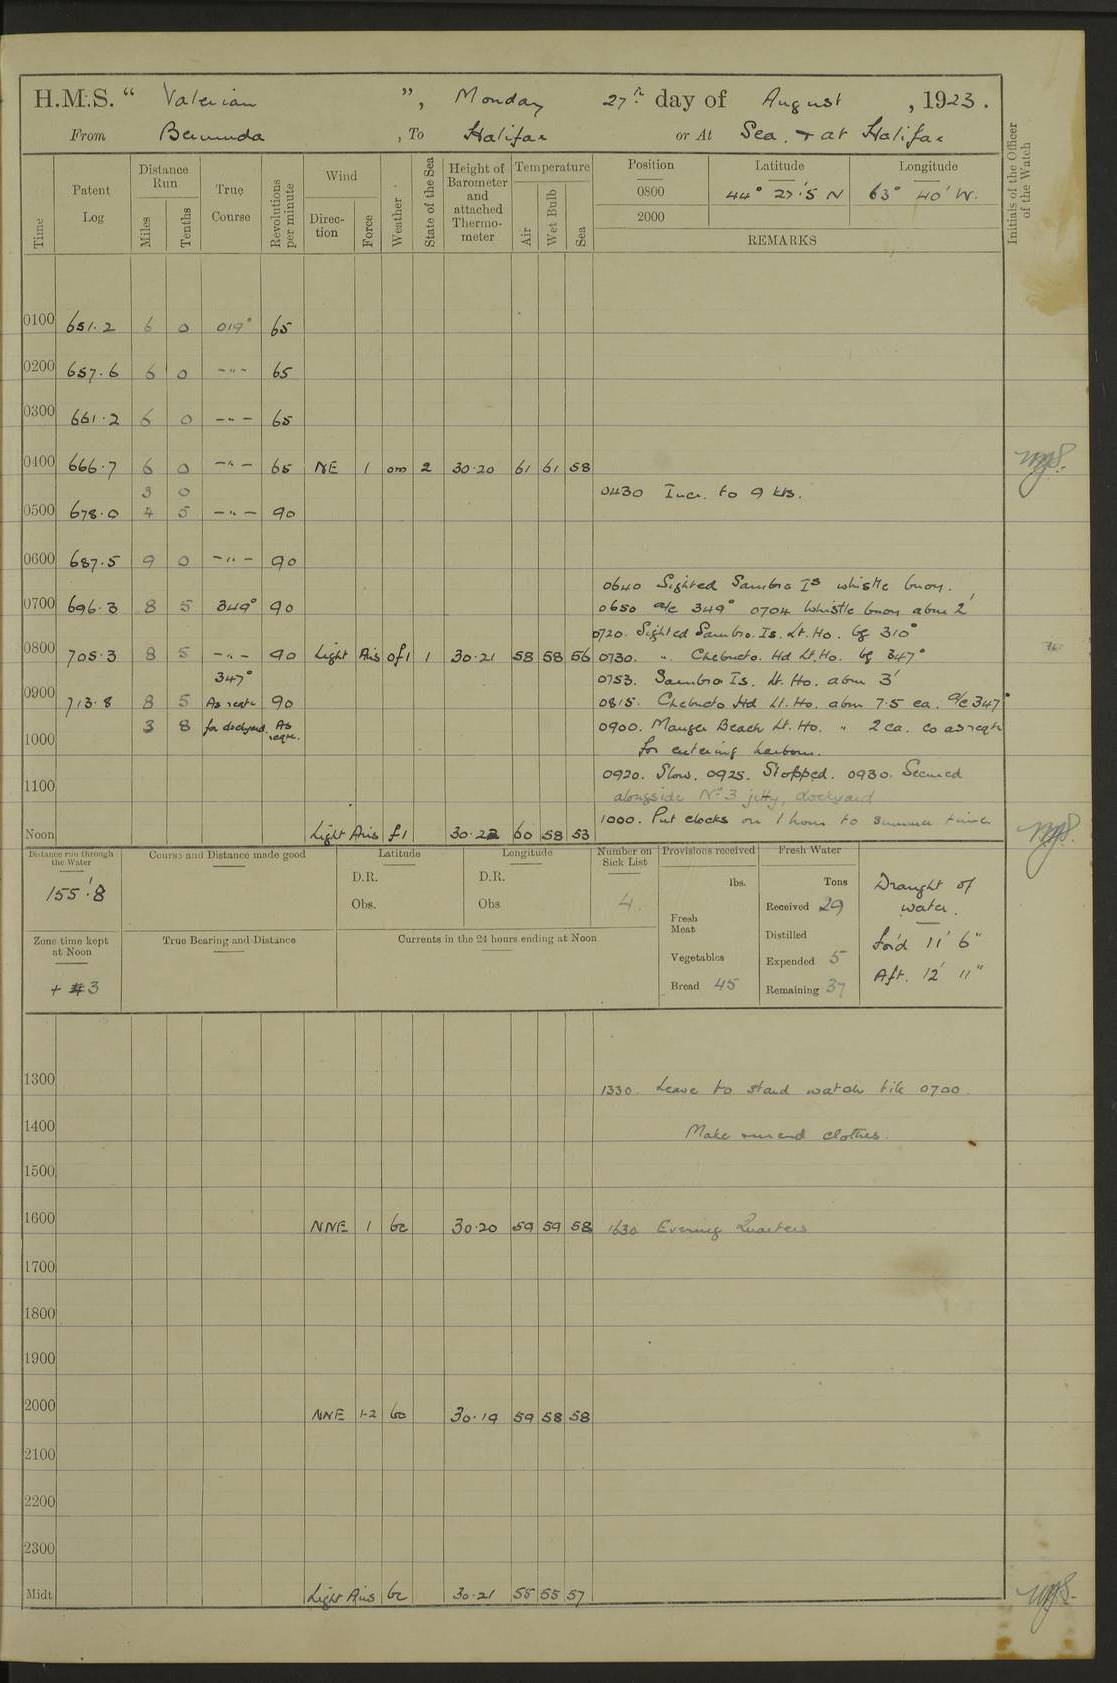 H.M.S. “ Valerian ”, Monday 27th day of August, 1923.
From Bermuda, To Halifax or At Sea. & at Halifax
Time
Patent Log
Distance Run
Miles
Tenths
True Course
Revolutions per minute
Wind
Direction
Force
Weather
State of the Sea
Height of Barometer and attached Thermometer
Temperature
Air
Wet Bulb
Sea
Position
Latitude
Longitude
0800 44° 27'.5 N 63° 40' W.
2000
REMARKS
Initials of the Officer of the Watch
0100 651.2 6 0 019° 65
0200 657.6 6 0 -"- 65
0300 661.2 6 0 -"- 65
0400 666.7 6 0 -"- 65 NE 1 om 2 30.20 61 61 58
3 0 0430 Incr. to 9 kts.
0500 678.0 4 5 -"- 90
0600 687.5 9 0 -"- 90
0640 Sighted Sambro Is whistle buoy.
0700 696.3 8 5 349° 90 0650 a/c 349° 0704 Whistle buoy abm 2'
0720. Sighted Sambro. Is. Lt. Ho. bg 310°
0800 705.3 8 5 -"- 90 Light Airs of1 1 30.21 58 58 56 0730. " Chebucto. Hd Lt. Ho. bg 347°
347° 0753. Sambro Is. Lt. Ho. abm 3'
0900 713.8 8 5 As reqte 90 0815. Chebucto Hd Lt. Ho. abm 7.5 ca. a/c 347°
3 8 for dockyard. As reqte. 0900. Mauger Beach Lt. Ho. " 2 ca. Co as reqte
1000 for entering harbour.
0920. Slow. 0925. Stopped. 0930. Secured
1100 alongside No 3 jetty, dockyard
1000. Put clocks on 1 hour to summer time
Noon Light Airs f1 30.22 60 58 53
Distance run through the Water
155'.8
Course and Distance made good
Latitude
D.R.
Obs.
Longitude
D.R.
Obs
Number on Sick List
4.
Provisions received
lbs.
Fresh Meat
Vegetables
Bread 45
Fresh Water
Tons
Received 29
Distilled
Expended 5
Remaining 37
Draught of water.
For'd 11' 6"
Aft. 12' 11"
Zone time kept at Noon
+ 3
True Bearing and Distance
Currents in the 24 hours ending at Noon
1300 1330. Leave to stand watch till 0700.
1400 Make and mend clothes.
1500
1600 NNE 1 bc 30.20 59 59 58 1630 Evening Quarters
1700
1800
1900
2000 NNE 1-2 bc 30.19 59 58 58
2100
2200
2300
Midt Light Airs bc 30.21 55 55 57